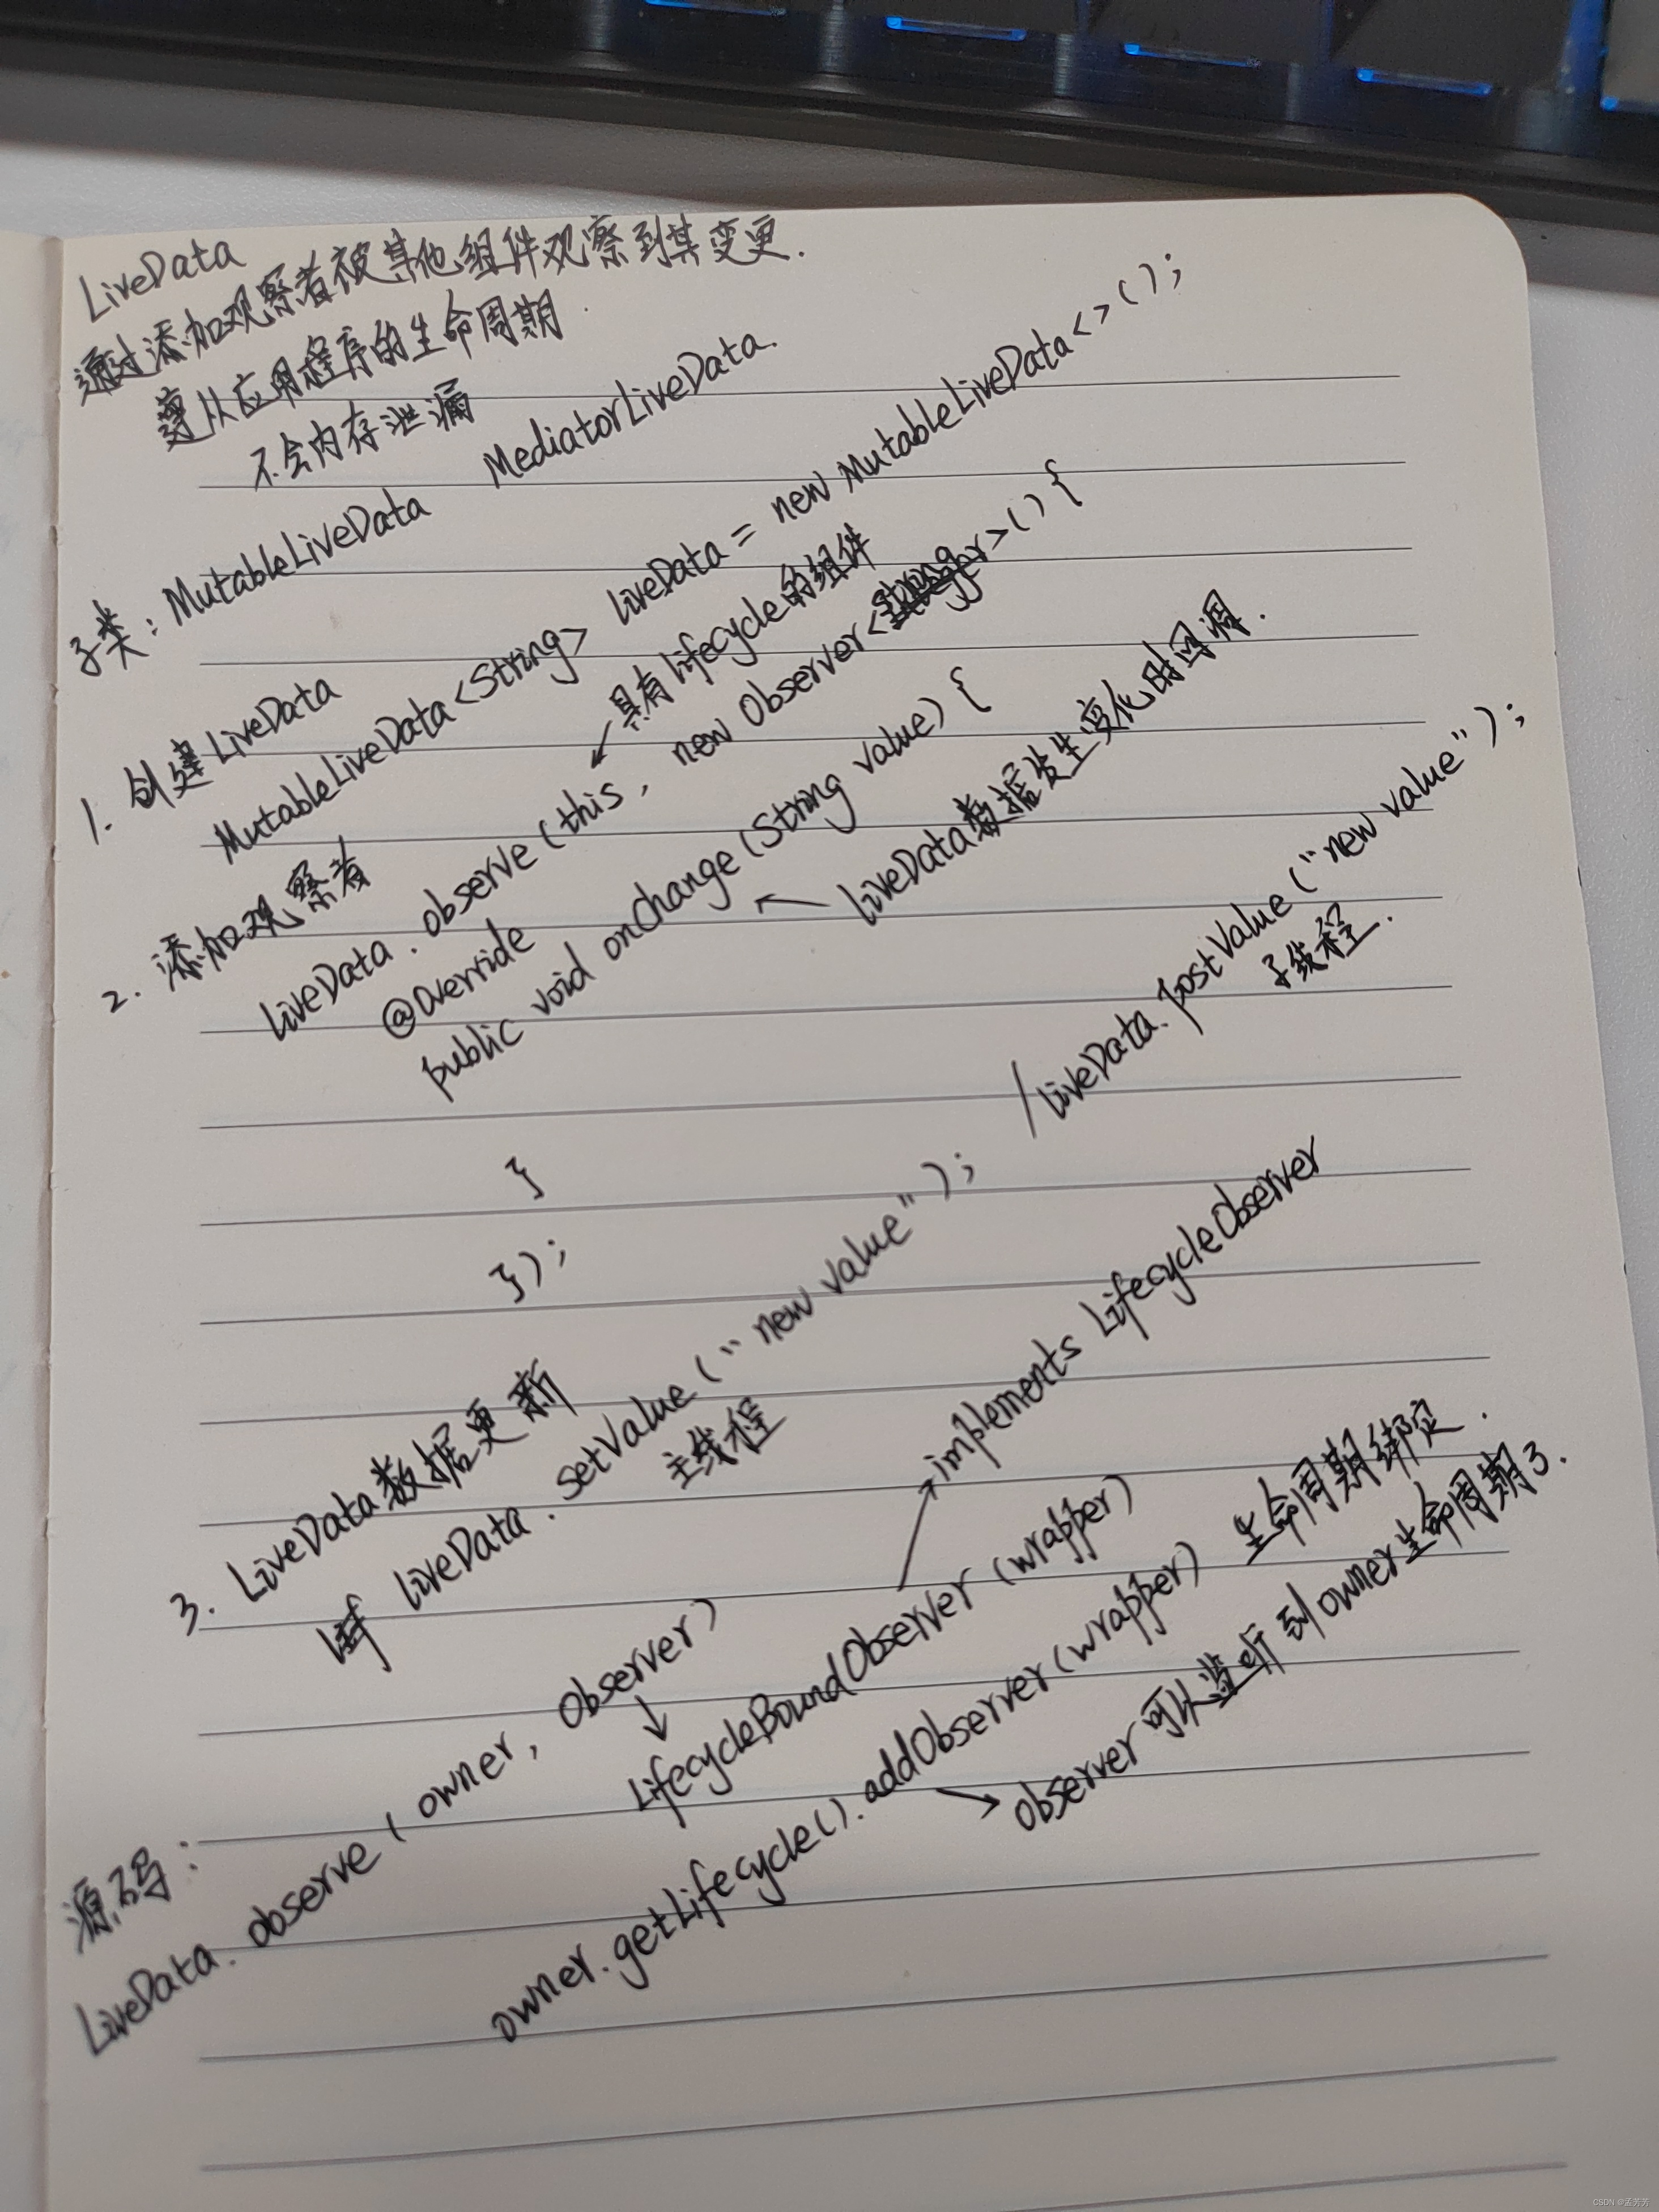 LiveData
通过添加观察者被其他组件观察到其变更.
遵从应用程序的生命周期.
不会内存泄漏
子类: MutableLiveData MediatorLiveData.
1. 创建LiveData
MutableLiveData<String> liveData = new MutableLiveData<>();
具有lifecycle的组件
2. 添加观察者
liveData.observe(this, new Observer<>() {
@Override
public void onChange(String value) {
liveData数据发生变化时回调.
}
});
3. LiveData数据更新
liveData.setValue("new value"); /liveData.postValue("new value");
主线程 子线程.
源码:
LiveData.observe(owner, Observer)
LifecycleBoundObserver(wrapper)
implements LifecycleObserver
owner.getLifecycle().addObserver(wrapper) 生命周期绑定.
observer可以监听到owner生命周期了.
CSDN @孟芳芳